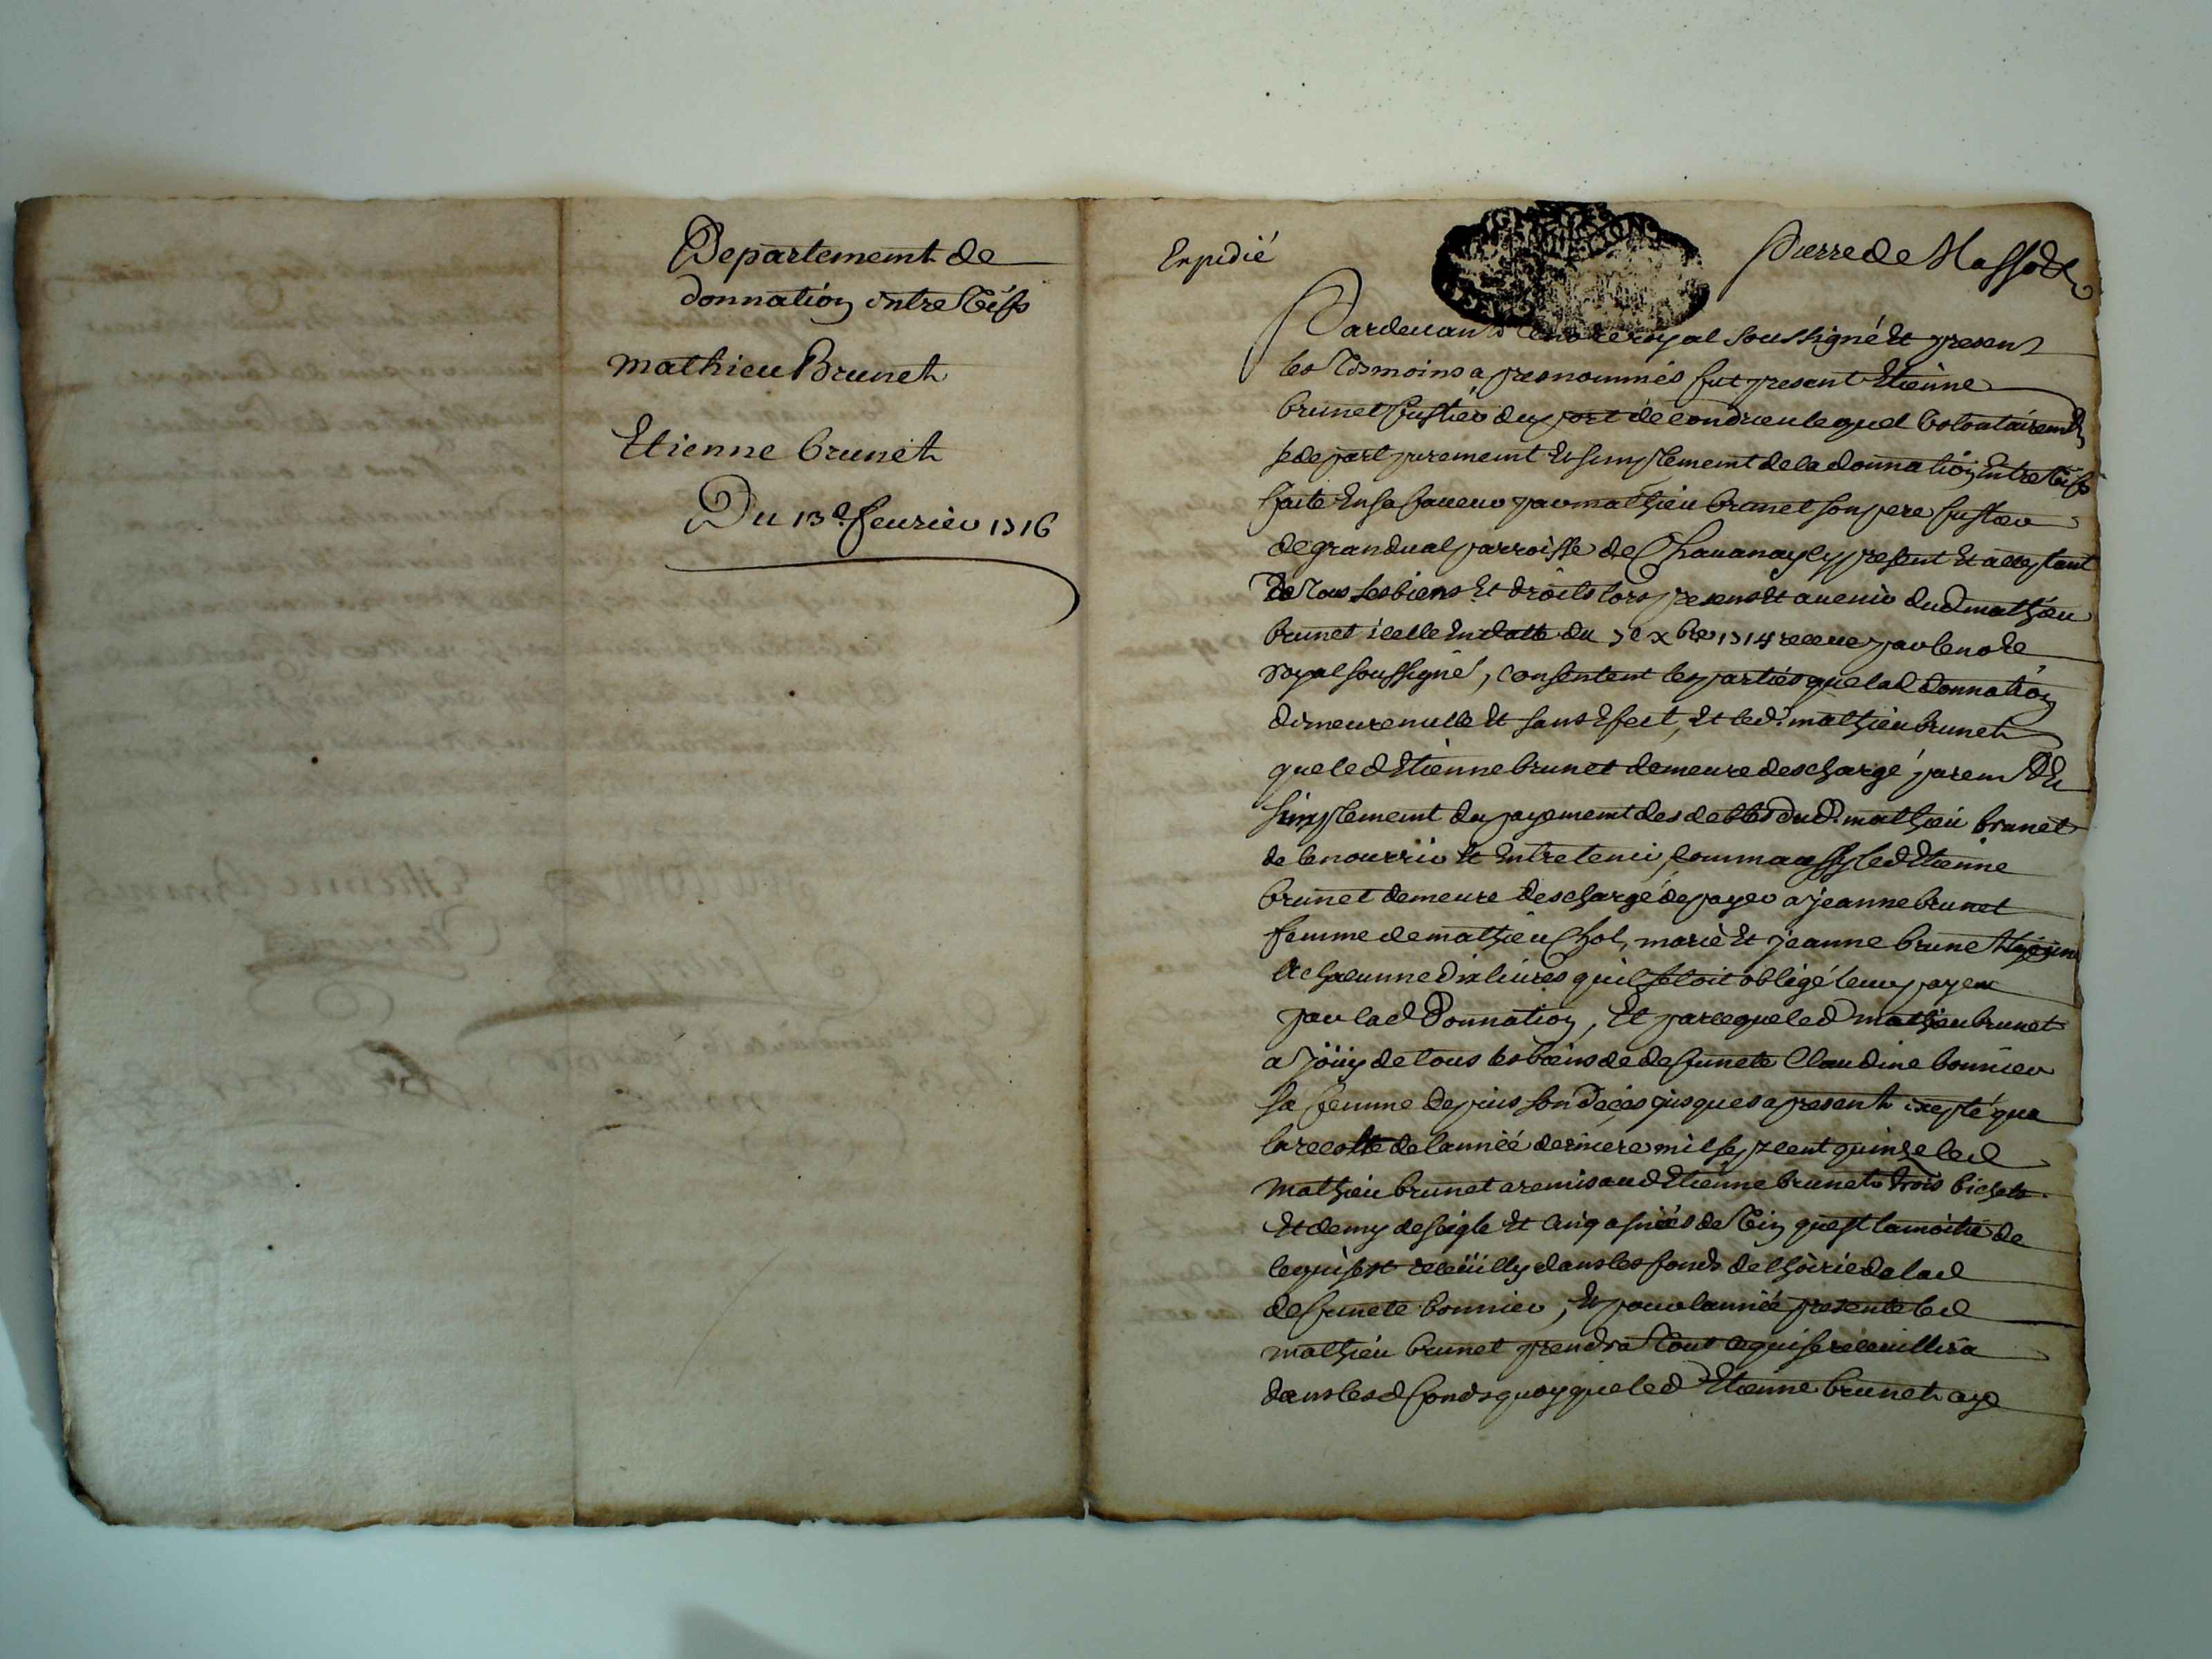 Departement de
donnation entre vifs
mathieu Brunet
Etienne brunet
Du 13e feurier 1716
Expedié
Pierre de Masso
Pardeuant le no.re royal soussigné et presens
les tesmoins apres nommés fut present Etienne
brunet fustier du port de condrieu lequel volontairement
se depart purement et simplement de la donnation entre vifs
faite en sa faueur par mathieu brunet son pere fustier
de grandual parroisse de Chauanay cy present et acceptant
de tous ses biens et droits lors presens et auenir dud mathieu
brunet icelle en datte du 7e xbre 1714 receue par le no.re
royal soussigné, consentent les parties que lad donnation
demeure nulle et sans efect, et led. mathieu brunet
que led Etienne brunet demeure deschargé purem.t et
simplement du payement des debtes dud. mathieu brunet
de le nourrir et entretenir, comm aussy led Etienne
brunet demeure deschargé de payer a jeanne brunet
femme de mathieu Chol, marie et jeanne brunet
a chacunne dix liures quil setoit obligé leur payer
par lad Donnation, Et parce que led mathieu brunet
a joüy de tous les biens de defuncte Claudine bonnier
sa femme depuis son deces jusques a present excepté que
la recolte de lannéé derniere mil sept cent quinze led
mathieu brunet a remis aud Etienne brunet trois bichets
et demy de seigle et cinq asnéés de vin quest la moitié de
ce qui sest receüilly dans les fonds de lhoirie de lad
defuncte bonnier, Et pour lannéé presente led
mathieu brunet prendra tout ce qui se receuillira
dans lesd fonds quoy que led Etienne brunet aye